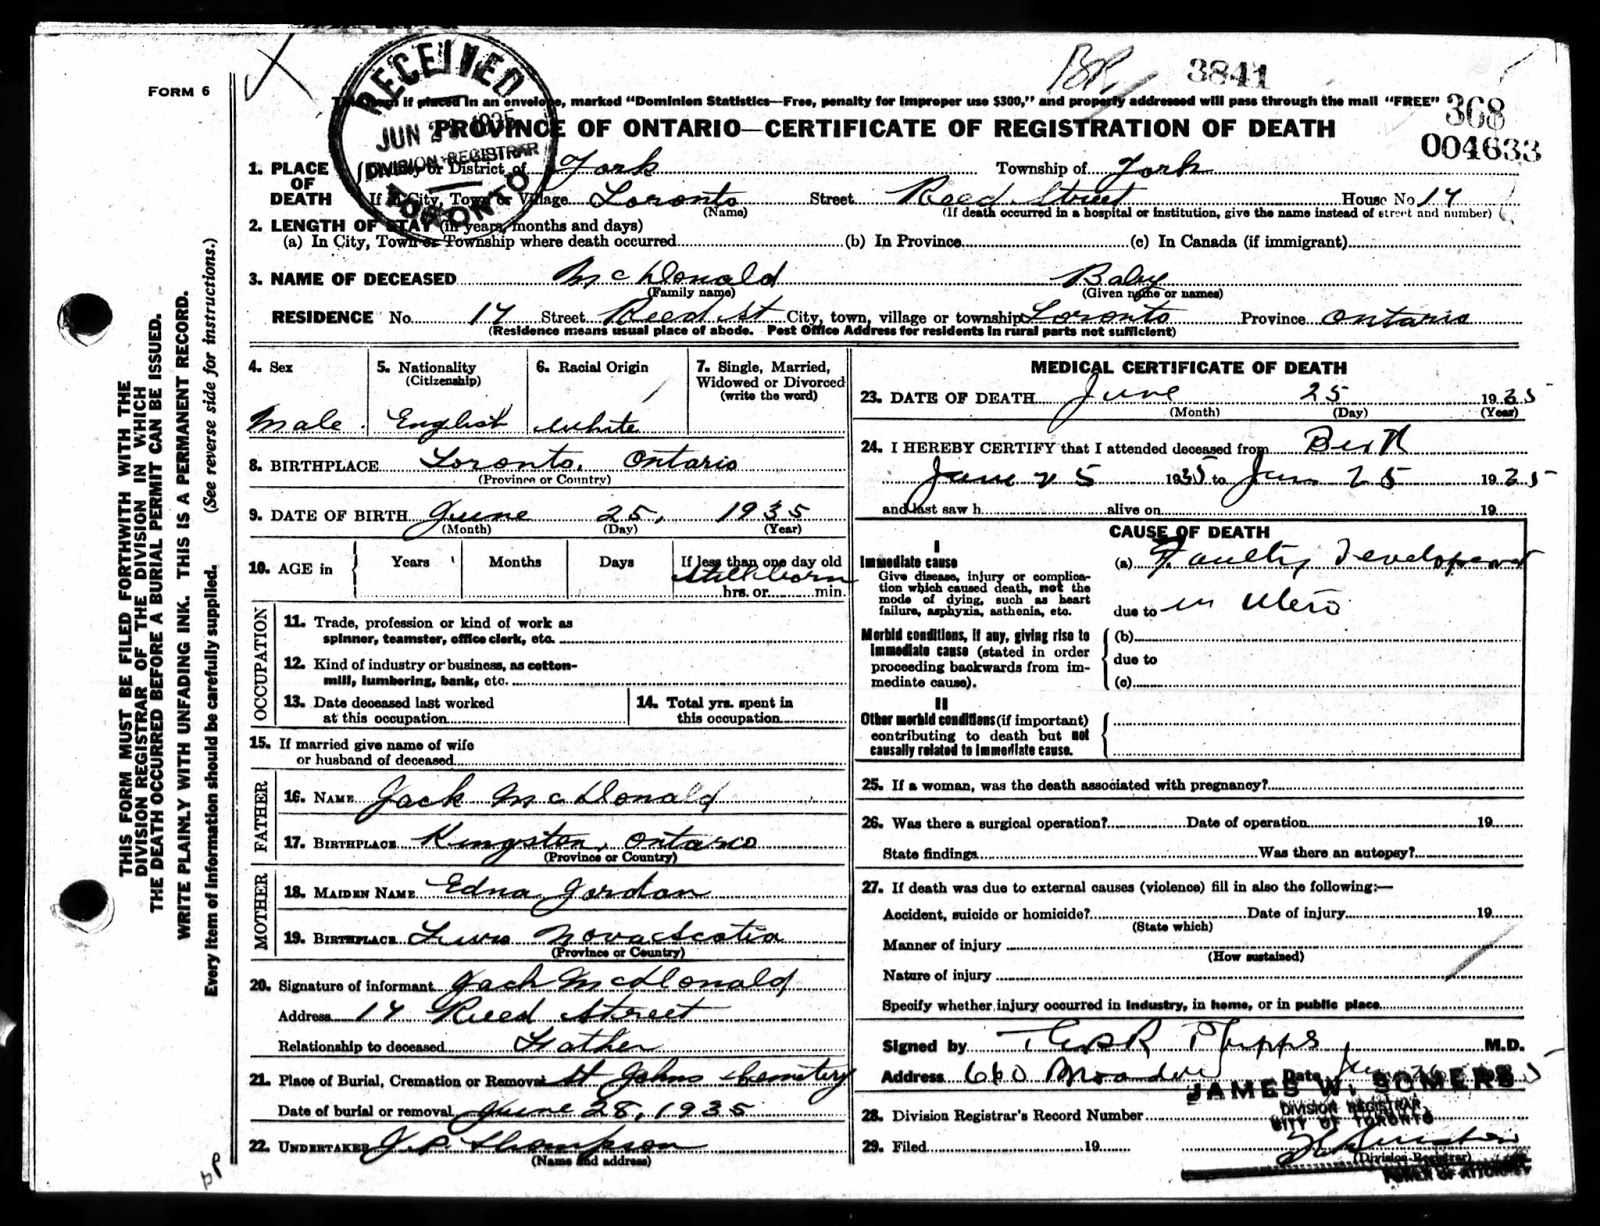 FORM 6
3841
This form if placed in an envelope, marked "Dominion Statistics—Free, penalty for improper use $300," and properly addressed will pass through the mail "FREE"
368
004633
RECEIVED
JUN 1935
DIVISION REGISTRAR
TORONTO
PROVINCE OF ONTARIO—CERTIFICATE OF REGISTRATION OF DEATH
1. PLACE OF DEATH County or District of York Township of York
If in City, Town or Village Toronto (Name) Street Reed Street House No 14
(If death occurred in a hospital or institution, give the name instead of street and number)
2. LENGTH OF STAY (in years, months and days)
(a) In City, Town or Township where death occurred (b) In Province (c) In Canada (if immigrant)
3. NAME OF DECEASED McDonald Baby
(Family name) (Given name or names)
RESIDENCE No. 14 Street Reed St City, town, village or township Toronto Province Ontario
(Residence means usual place of abode. Post Office Address for residents in rural parts not sufficient)
4. Sex 5. Nationality (Citizenship) 6. Racial Origin 7. Single, Married, Widowed or Divorced (write the word)
Male English White
8. BIRTHPLACE Toronto, Ontario
(Province or Country)
9. DATE OF BIRTH June 25, 1935
(Month) (Day) (Year)
10. AGE in Years Months Days If less than one day old
Stillborn
hrs. or min.
OCCUPATION
11. Trade, profession or kind of work as spinner, teamster, office clerk, etc.
12. Kind of industry or business, as cotton-mill, lumbering, bank, etc.
13. Date deceased last worked at this occupation
14. Total yrs. spent in this occupation
15. If married give name of wife or husband of deceased
FATHER
16. NAME Jack McDonald
17. BIRTHPLACE Kingston, Ontario
(Province or Country)
MOTHER
18. MAIDEN NAME Edna Jordan
19. BIRTHPLACE Nova Scotia
(Province or Country)
20. Signature of informant Jack McDonald
Address 14 Reed Street
Relationship to deceased Father
21. Place of Burial, Cremation or Removal St Johns Cemetery
Date of burial or removal June 28, 1935
22. UNDERTAKER J. P. Thompson
(Name and address)
MEDICAL CERTIFICATE OF DEATH
23. DATE OF DEATH June 25 1935
(Month) (Day) (Year)
24. I HEREBY CERTIFY that I attended deceased from Birth
June 25 1935 to Jun 25 1935
and last saw h alive on 19
CAUSE OF DEATH
I
Immediate cause
Give disease, injury or complication which caused death, not the mode of dying, such as heart failure, asphyxia, asthenia, etc.
(a) Faulty Development
due to in utero
Morbid conditions, if any, giving rise to immediate cause (stated in order proceeding backwards from immediate cause).
(b)
due to
(c)
II
Other morbid conditions (if important) contributing to death but not causally related to immediate cause.
25. If a woman, was the death associated with pregnancy?
26. Was there a surgical operation? Date of operation 19
State findings Was there an autopsy?
27. If death was due to external causes (violence) fill in also the following:—
Accident, suicide or homicide? Date of injury 19
(State which)
Manner of injury
(How sustained)
Nature of injury
Specify whether injury occurred in industry, in home, or in public place
Signed by Phipps M.D.
Address 660 Broadview Date
JAMES W. SOMERS
DIVISION REGISTRAR
CITY OF TORONTO
28. Division Registrar's Record Number
29. Filed 19
(Division Registrar)
POWER OF ATTORNEY
THIS FORM MUST BE FILED FORTHWITH WITH THE
DIVISION REGISTRAR OF THE DIVISION IN WHICH
THE DEATH OCCURRED BEFORE A BURIAL PERMIT CAN BE ISSUED.
WRITE PLAINLY WITH UNFADING INK. THIS IS A PERMANENT RECORD.
Every item of information should be carefully supplied. (See reverse side for instructions.)